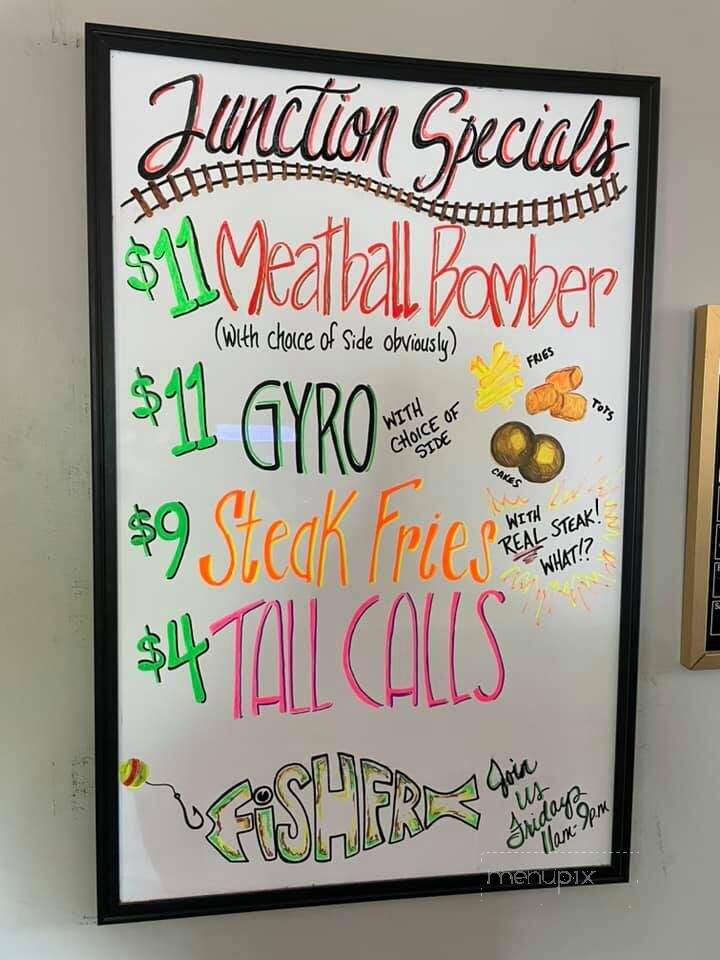 Junction Specials
$11 Meatball Bomber
(With choice of Side obviously)
FRIES
TOTS
CAKES
$11 GYRO WITH CHOICE OF SIDE
$9 Steak Fries
WITH
REAL STEAK!
WHAT!?
$4 TALL CALLS
FiSHFRY
Join
Us
Fridays
11am-9pm
menupix